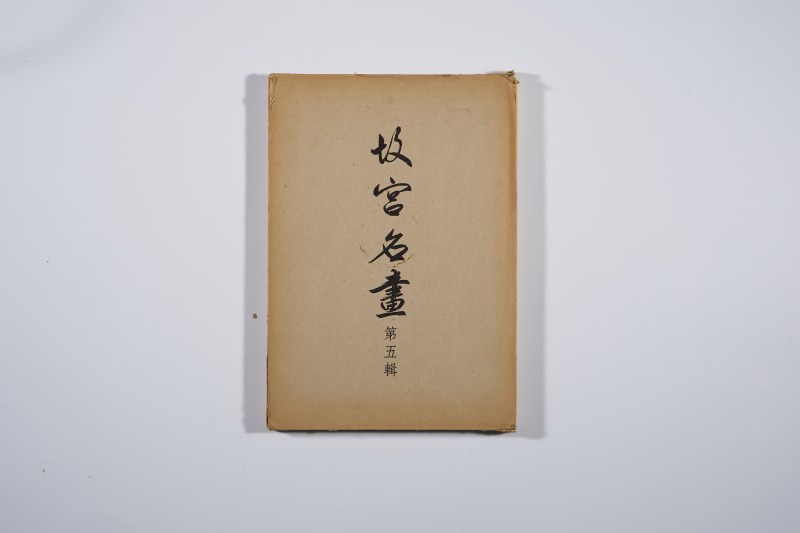 故宮名畫
第五輯